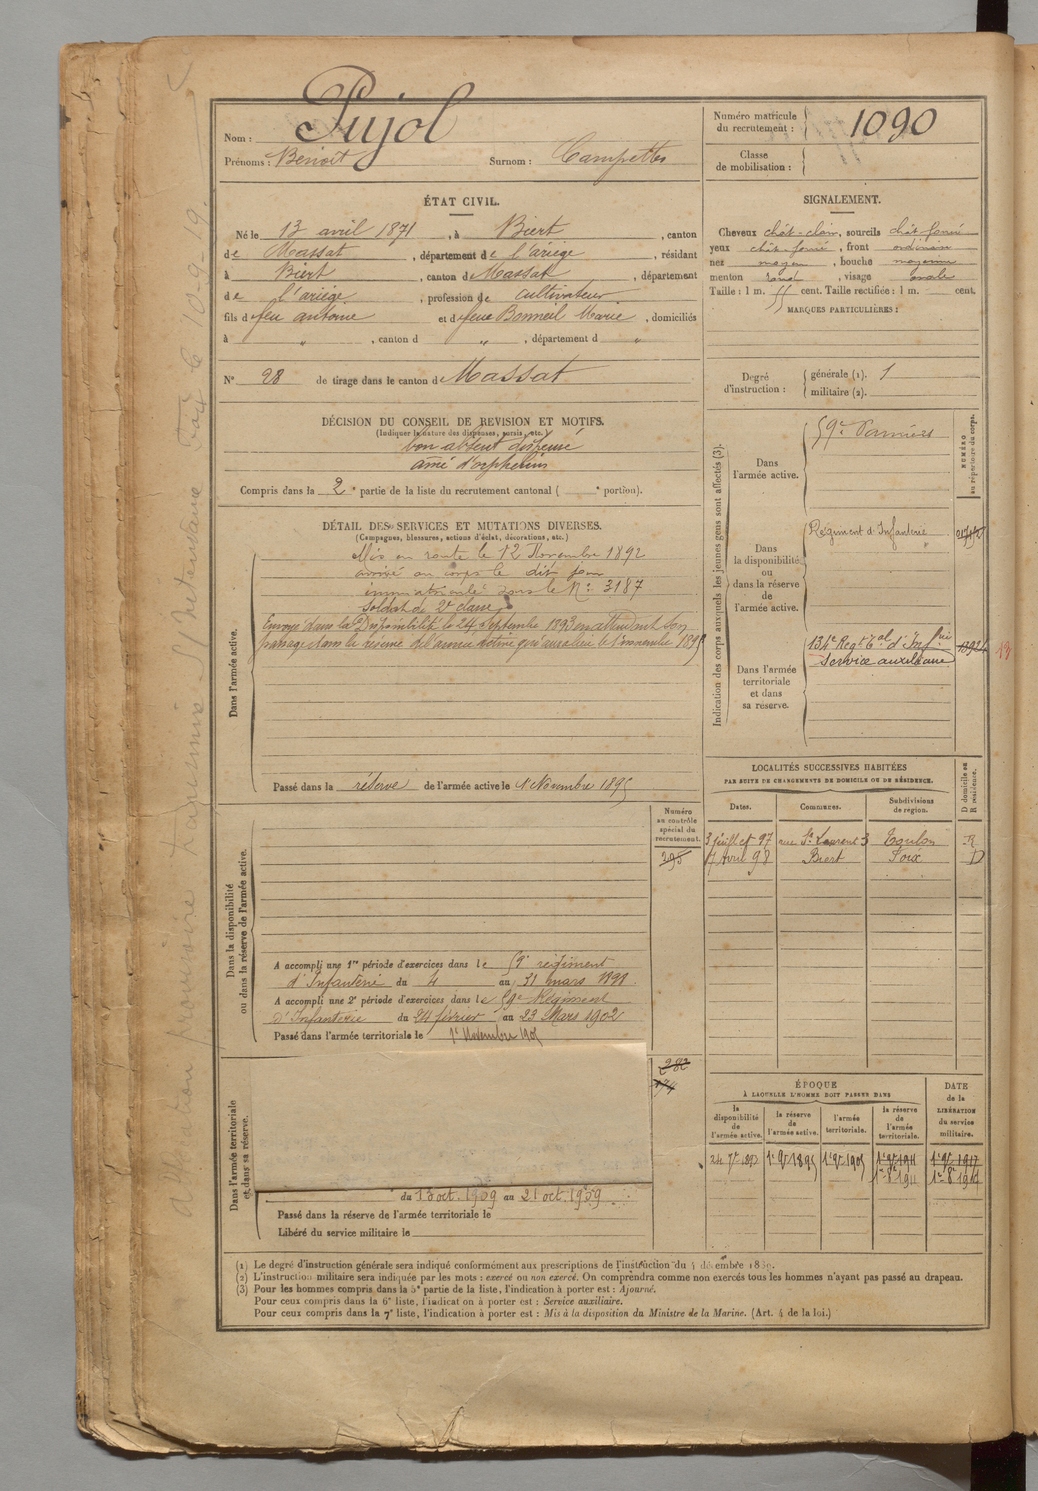 Nom : Pujol
Prénoms : Benoit Surnom : Campettes
Numéro matricule
du recrutement : 1090
Classe
de mobilisation :
ÉTAT CIVIL.
Né le 13 avril 1871, à Biert, canton
de Massat, département de l'ariège, résidant
à Biert, canton de Massat, département
de l'ariège, profession de cultivateur
fils de feu antoine et de feue Bonneil Marie, domiciliés
à " , canton d " , département d "
N° 28 de tirage dans le canton de Massat
SIGNALEMENT.
Cheveux chât-clair, sourcils chât foncé
yeux chât-foncé, front ordinaire
nez moyen, bouche moyenne
menton rond, visage ovale
Taille : 1 m. 55 cent. Taille rectifiée : 1 m. cent.
MARQUES PARTICULIÈRES :
Degré
d'instruction :
générale (1). 1
militaire (2).
DÉCISION DU CONSEIL DE REVISION ET MOTIFS.
(Indiquer la nature des dispenses, sursis, etc.)
bon absent dispensé
aîné d'orphelins
Compris dans la 2e partie de la liste du recrutement cantonal ( e portion).
DÉTAIL DES SERVICES ET MUTATIONS DIVERSES.
(Campagnes, blessures, actions d'éclat, décorations, etc.)
Dans l'armée active.
Mis en route le 12 Novembre 1892
arrivé au corps le dit jour
immatriculé sous le N° 3187
Soldat de 2e classe
Envoyé dans la Disponibilité le 24 Septembre 1893 en attendant son
passage dans la réserve de l'armée active qui aura lieu le 1 novembre 1895
Passé dans la réserve de l'armée active le 1r Novembre 1895
Indication des corps auxquels les jeunes gens sont affectés (3).
NUMÉRO
au répertoire du corps.
Dans
l'armée active.
59e Pamiers
Dans
la disponibilité
ou
dans la réserve
de
l'armée active.
Régiment d'Infanterie
Dans l'armée
territoriale
et dans
sa réserve.
134e Regt Tal d'Infrie
Service auxiliaire
13
LOCALITÉS SUCCESSIVES HABITÉES
PAR SUITE DE CHANGEMENTS DE DOMICILE OU DE RÉSIDENCE.
D domicile ou
R résidence.
Dates. Communes. Subdivisions
de région.
3 juillet 97 rue St Laurent 3 Toulon R
17 Avril 98 Biert Foix D
Dans la disponibilité
ou dans la réserve de l'armée active.
Numéro
au contrôle
spécial du
recrutement.
295
A accompli une 1re période d'exercices dans le 59e régiment
d'Infanterie du 4 au 31 mars 1898.
A accompli une 2e période d'exercices dans le 59e Régiment
D'Infanterie du 24 février au 23 Mars 1902
Passé dans l'armée territoriale le 1r Novembre 1905
Dans l'armée territoriale
et dans sa réserve.
282
174
du 13 oct. 1909 au 21 oct. 1909
Passé dans la réserve de l'armée territoriale le
Libéré du service militaire le
ÉPOQUE
À LAQUELLE L'HOMME DOIT PASSER DANS
la
disponibilité
de
l'armée active.
la réserve
de
l'armée active.
l'armée
territoriale.
la réserve
de
l'armée
territoriale.
DATE
de la
LIBÉRATION
du service
militaire.
24 7re 1893 1r 9re 1895 1r 9re 1905 1r 9re 1911 1r 9re 1917
1r 8re 1911
(1) Le degré d'instruction générale sera indiqué conformément aux prescriptions de l'instruction du 4 décembre 1889.
(2) L'instruction militaire sera indiquée par les mots : exercé ou non exercé. On comprendra comme non exercés tous les hommes n'ayant pas passé au drapeau.
(3) Pour les hommes compris dans la 5e partie de la liste, l'indication à porter est : Ajourné.
Pour ceux compris dans la 6e liste, l'indication à porter est : Service auxiliaire.
Pour ceux compris dans la 7e liste, l'indication à porter est : Mis à la disposition du Ministre de la Marine. (Art. 4 de la loi.)